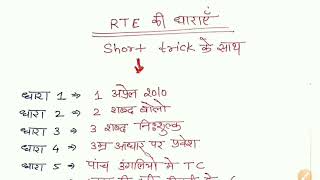 RTE की धाराएँ
Short trick के साथ
धारा 1 ⇒ 1 अप्रैल 2010
धारा 2 ⇒ 2 शब्द बोलो
धारा 3 ⇒ 3 शब्द निःशुल्क
धारा 4 ⇒ उम्र आधार पर प्रवेश
धारा 5 ⇒ पांच उंगलियो मे TC